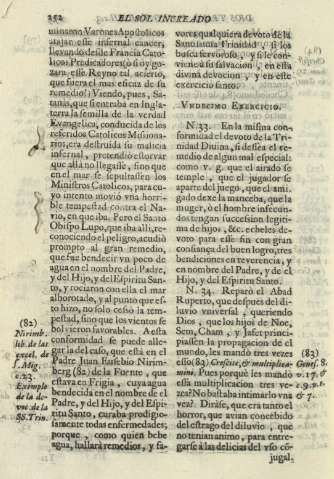 252 EL SOL INERTADO
mismos Varones Apostolicos
atajar este infernal cancer,
llevando desde Francia Cato-
licos Predicadores; si ò yò go-
zara esse Reyno tal acierto,
que fuera el mas eficaz de su
remedio! Viendo, pues, Sa-
tanàs, que si entraba en Ingla-
terra la semilla de la verdad
Evangelica, conducida de los
referidos Catolicos Missiona-
rios, era destruida su malicia
infernal, pretendiò estorvar
que allà no llegasse, sino que
en el mar se sepultassen los
Ministros Catolicos, para cu-
yo intento moviò vna horri-
ble tempestad contra el Na-
vio, en que iba. Pero el Santo
Obispo Lupo, que iba alli, re-
conociendo el peligro, acudiò
prompto al gran remedio,
que fue bendecir vn poco de
agua en el nombre del Padre,
y del Hijo, y del Espiritu San-
to, y rociando con ella el mar
alborotado, y al punto que es-
to hizo, no solo cesò la tem-
pestad, sino que los vientos se
bolvieron favorables. A esta
conformidad se puede alle-
gar la del caso, que està en el
Padre Juan Eusebio Nirem-
berg (82) de la Fuente, que
estava en Frigia, cuya agua
bendecida en el nombre de el
Padre, y del Hijo, y del Espi-
ritu Santo, curaba prodigio-
samente todas enfermedades;
porque, como quien bebe
agua, hallarà remedios, y fa-
(82)
Niremb.
lib. de las
excel. de
S. Mig.
c. 23.
Exemplo
de la de-
voc. de la
SS. Trin.
vores qualquiera devoto de la
Santissima Trinidad, si los
busca fervoroso, y si le con-
viene à su salvacion, en esta
divina devocion, y en este
exercicio santo.
UNDECIMO EXERCICIO.
N. 33. En la misma con-
formidad el devoto de la Tri-
nidad Divina, si desea el re-
medio de algun mal especial:
como v. g. que el airado se
temple, que el jugador se
aparte del juego, que el ami-
gado dexe la manceba, que la
muger, ò el hombre infecun-
dos tengan succession legiti-
ma de hijos, &c. echeles de-
voto para esse fin con gran
confiança del buen logro, tres
bendiciones en reverencia, y
en nombre del Padre, y de el
Hijo, y del Espiritu Santo.
N. 34. Reparò el Abad
Ruperto, que despues del di-
luvio vniversal, queriendo
Dios, que los hijos de Noe,
Sem, Cham, y Jafet princi-
piassen la propagacion de el
mundo, les mandò tres vezes
esso; (83) Crescite, & multiplica-
mini. Pues porquè les mandò
essa multiplicacion tres ve-
zes? No bastaba intimarlo vna
vez? Diràse, que era tanto el
horror, que avian concebido
del estrago del diluvio, que
no tenian animo, para entre-
garse à las delicias del vso có-
jugal.
(83)
Genes. 8.
v. 17. &
c. 9. v. 1.
& 7.